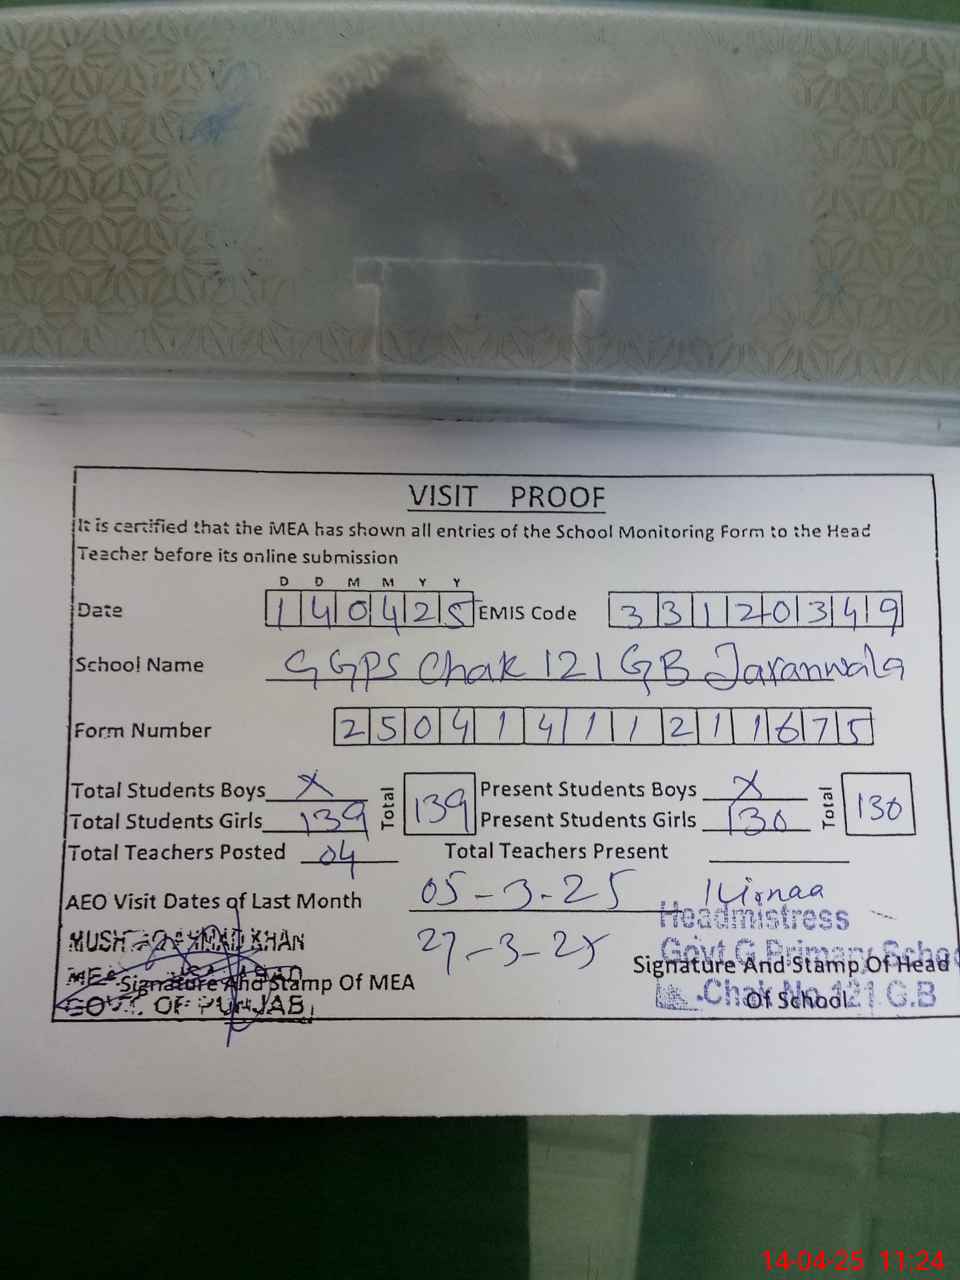 VISIT PROOF
It is certified that the MEA has shown all entries of the School Monitoring Form to the Head
Teacher before its online submission
D D M M Y Y
Date 1 4 0 4 2 5 EMIS Code 3 3 1 2 0 3 4 9
School Name GGPS Chak 121 GB Jaranwala
Form Number 2 5 0 4 1 4 1 1 2 1 1 6 7 5
Total Students Boys X Total 139 Present Students Boys X Total 130
Total Students Girls 139 Present Students Girls 130
Total Teachers Posted 04 Total Teachers Present
AEO Visit Dates of Last Month 05-3-25
27-3-25
Headmistress
Govt G Primary Schoo
Chak No 121 G.B
Signature And Stamp Of Head
Of School
AHMAD KHAN
MEA
GOVT. OF PUNJAB
Signature And Stamp Of MEA
14-04-25 11:24